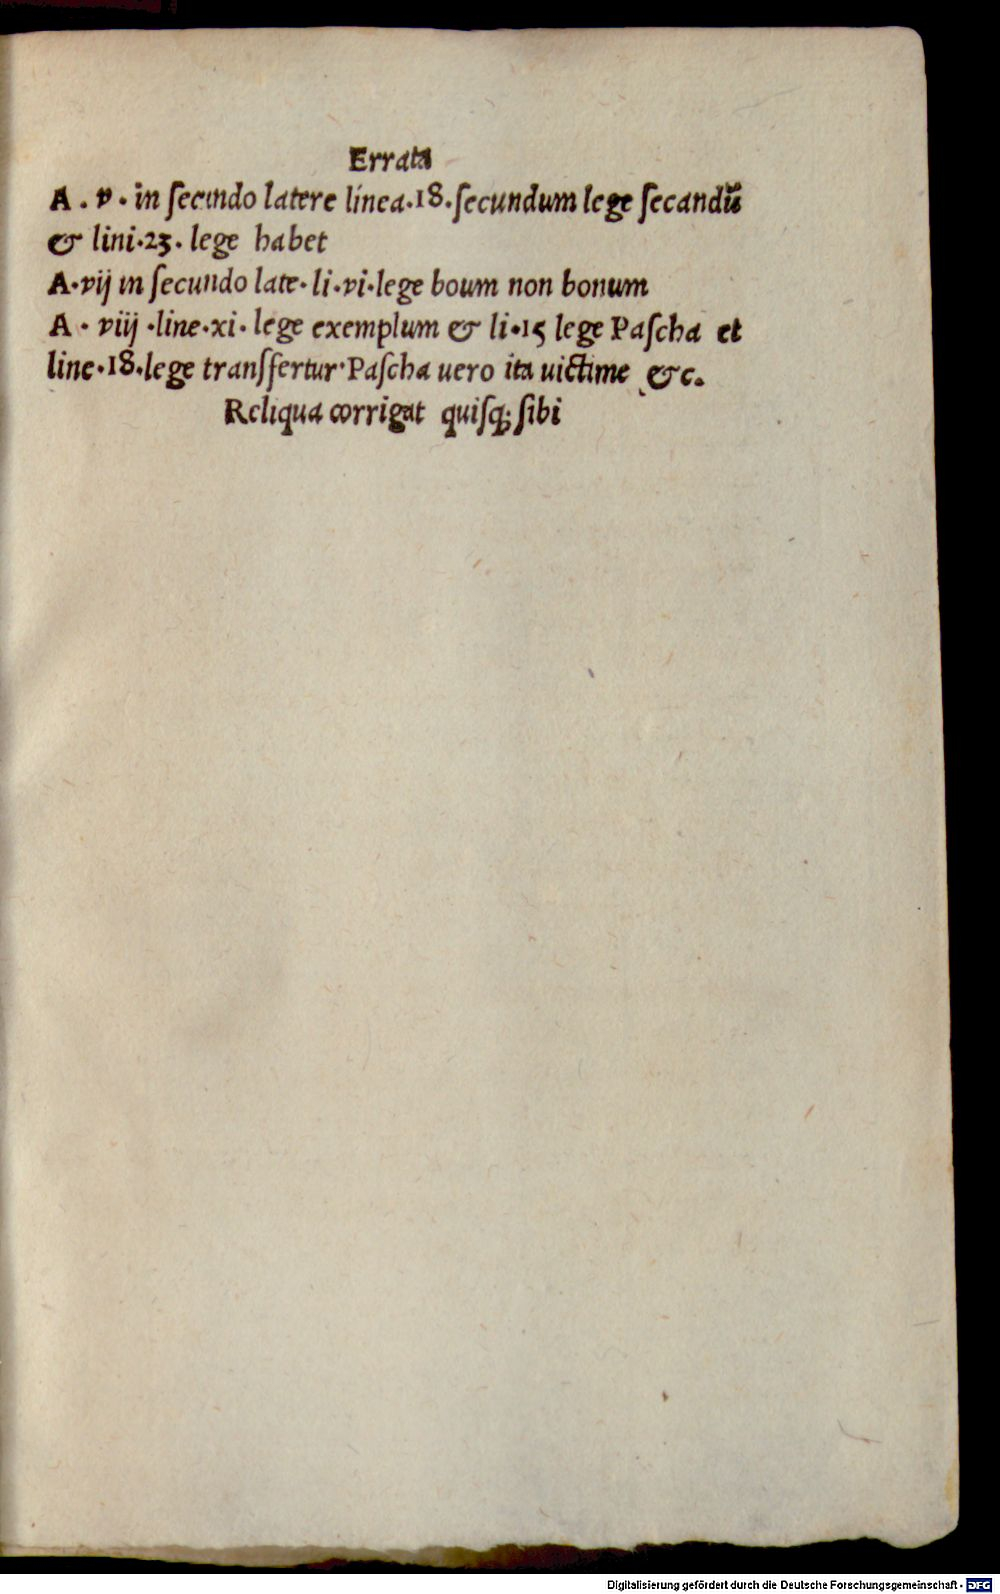 Errata
A . v . in ſecundo latere linea.18.ſecundum lege ſecandū
& lini.23. lege habet
A.vij in ſecundo late. li.vi.lege boum non bonum
A . viij .line.xi. lege exemplum & li.15 lege Paſcha et
line.18.lege tranſfertur.Paſcha uero ita uictime &c.
Reliqua corrigat quiſq; ſibi
Digitalisierung gefördert durch die Deutsche Forschungsgemeinschaft - DFG